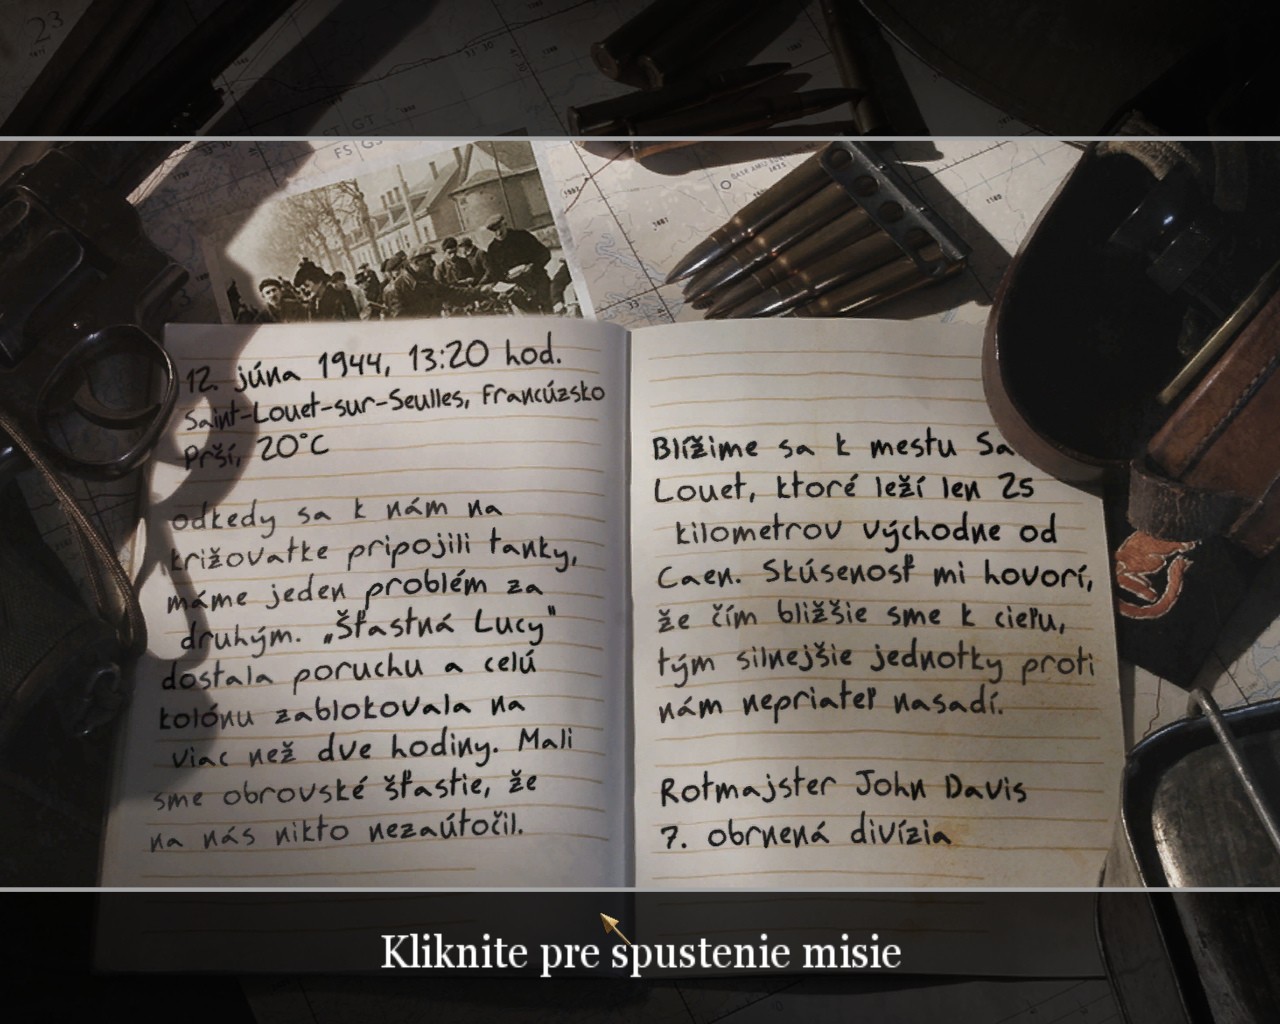 12. júna 1944, 13:20 hod.
Saint-Louet-sur-Seulles, Francúzsko
Prší, 20°C
odkedy sa k nám na
križovatke pripojili tanky,
máme jeden problém za
druhým. „Šťastná Lucy"
dostala poruchu a celú
kolónu zablokovala na
viac než dve hodiny. Mali
sme obrovské šťastie, že
na nás nikto nezaútočil.
Blížime sa k mestu Sa
Louet, ktoré leží len 25
kilometrov východne od
Caen. Skúsenosť mi hovorí,
že čím bližšie sme k cieľu,
tým silnejšie jednotky proti
nám nepriateľ nasadí.
Rotmajster John Davis
7. obrnená divízia
Kliknite pre spustenie misie